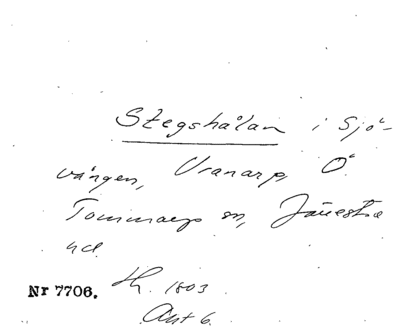 Stegshålan i Sjö-
vången, Vranarp, Ö
Tommarps sn, Järrestads
hd.
Nr 7706. Lh. 1803
Akt 6.